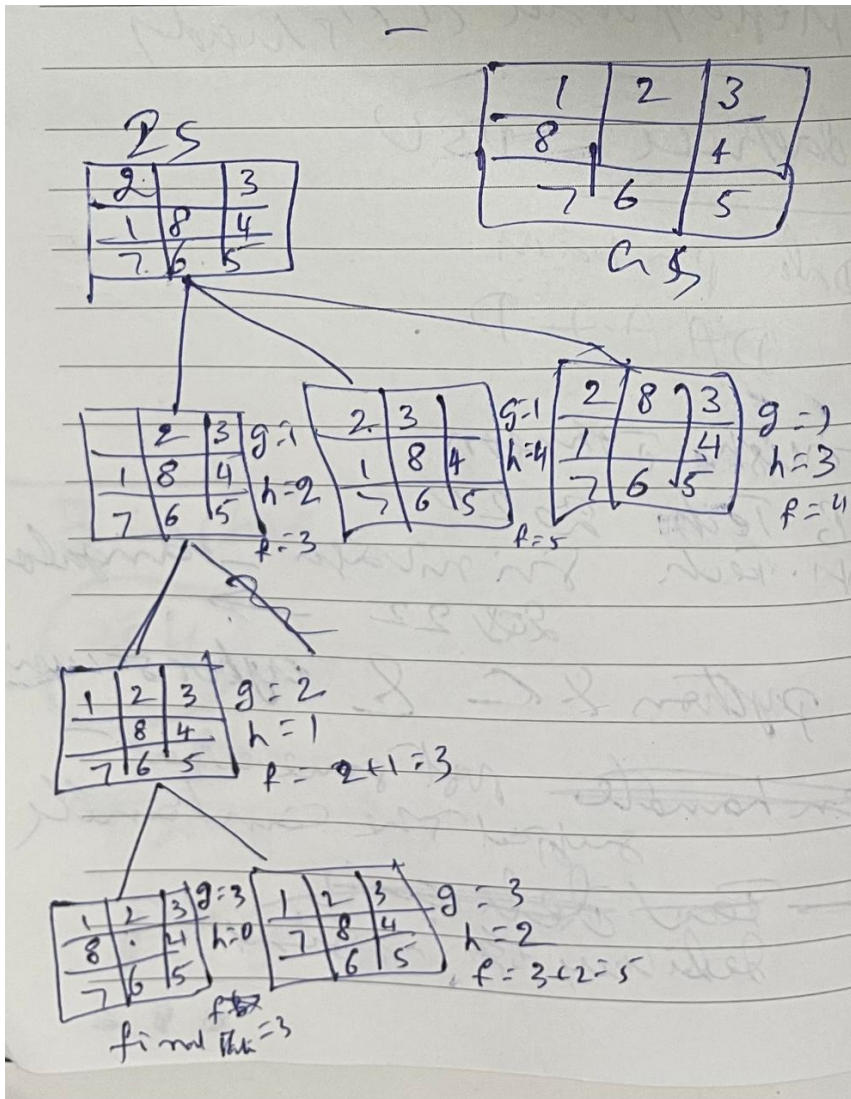 1 2 3
8 4
7 6 5
GS
IS
2 3
1 8 4
7 6 5
2 3
1 8 4
7 6 5
g=1
h=2
f=3
2 3
1 8 4
7 6 5
g=1
h=4
f=5
2 8 3
1 4
7 6 5
g=1
h=3
f=4
1 2 3
8 4
7 6 5
g=2
h=1
f=2+1=3
1 2 3
8 4
7 6 5
g=3
h=0
f=3
final
1 2 3
7 8 4
6 5
g=3
h=2
f=3+2=5